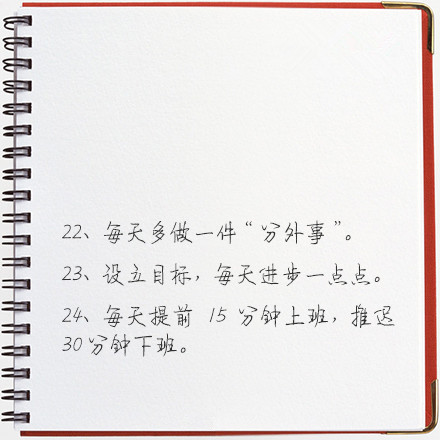 22、每天多做一件“分外事”。
23、设立目标，每天进步一点点。
24、每天提前 15 分钟上班，推迟
30分钟下班。